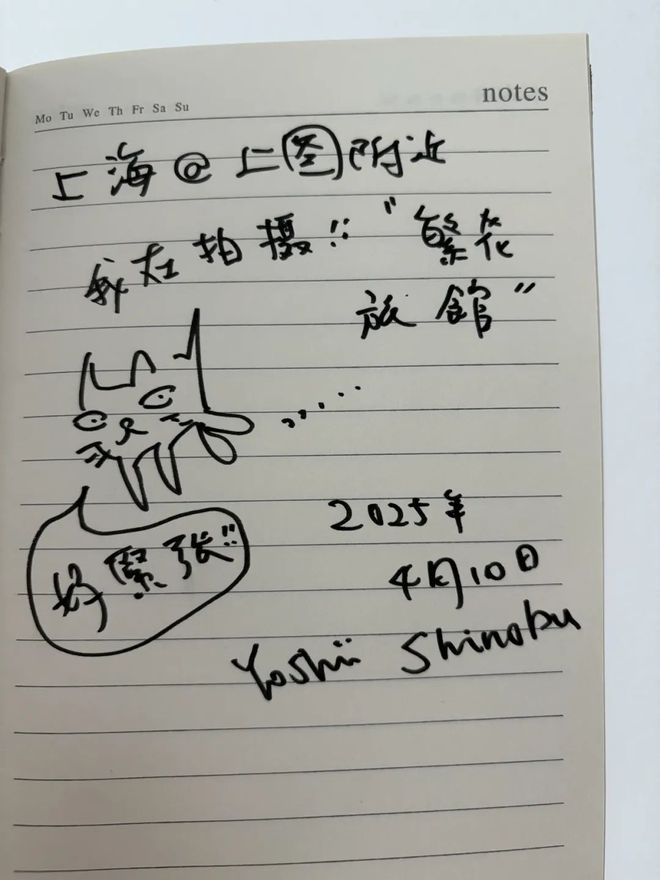 Mo Tu We Th Fr Sa Su
notes
上海@上图附近
我在拍摄!! "繁花
旅館"
......
好緊张!!
2025年
4月10日
Yoshii Shinobu